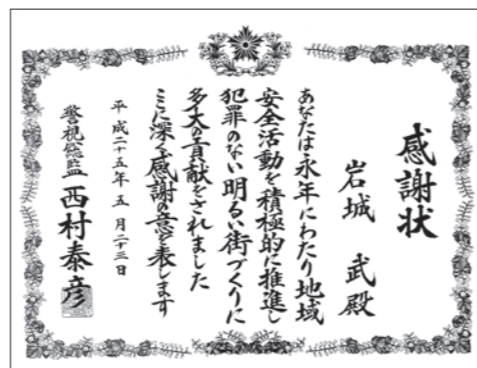 感謝状
岩城 武殿
あなたは永年にわたり地域
安全活動を積極的に推進し
犯罪のない明るい街づくりに
多大の貢献をされました
ここに深く感謝の意を表します
平成二十五年五月二十三日
警視総監 西村泰彦